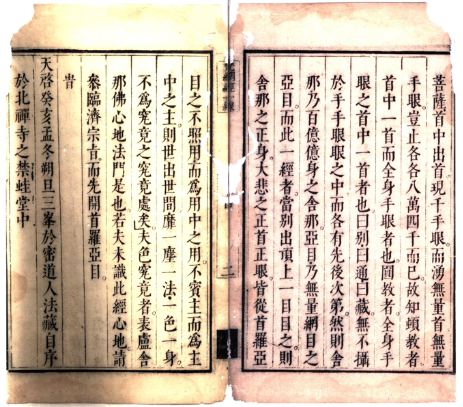 菩薩首中出首現千手眼而湧無量首無量
手眼豈止各各八萬四千而已故知頓教者
首中一首而全身手眼者也圓教者全身手
眼之首中一首者也曰別曰通曰藏無不攝
於手手眼眼之中而各有先後次第然則舍
那乃百億億身之舍那亞目乃無量網目之
亞目而此一經者當別出頂上一目目之則
舍那之正身大悲之正首正眼皆從首羅亞
二
目之不照用而為用中之用不賓主而為主
中之主則世出世間靡一塵一法一色一身
不為究竟之究竟處矣夫色究竟者表盧舍
那佛心地法門是也若夫未識此經心地請
參臨濟宗旨而先開首羅亞目
旹
天啓癸亥孟冬朔旦三峯於密道人法藏自序
於北禪寺之禁蛙堂中